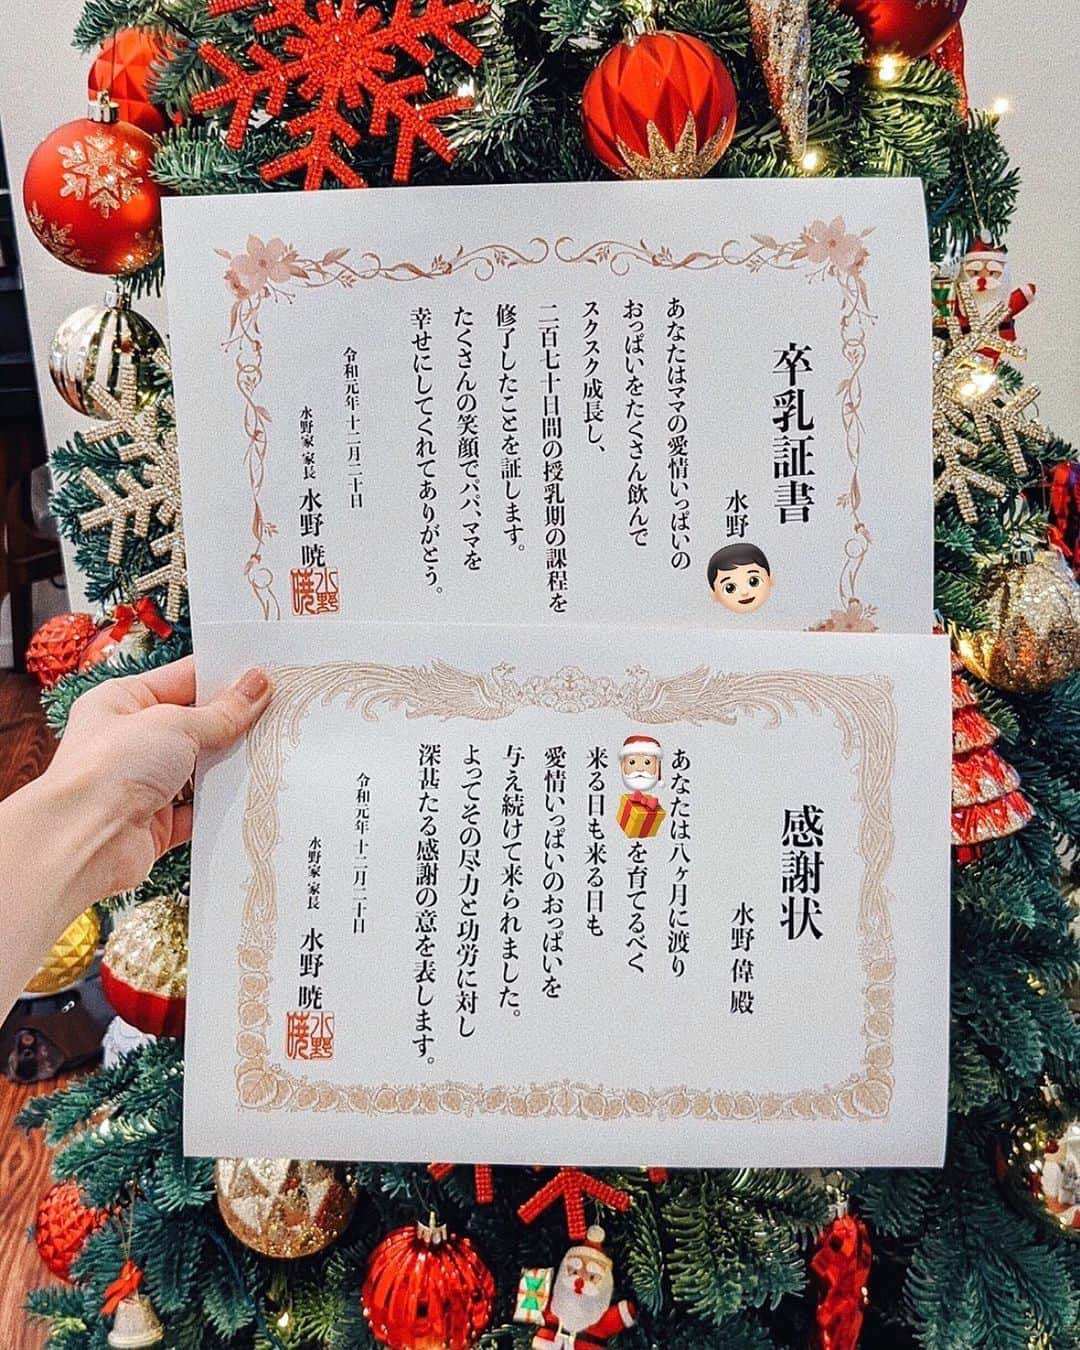 卒乳証書
水野
あなたはママの愛情いっぱいの
おっぱいをたくさん飲んで
スクスク成長し、
二百七十日間の授乳期の課程を
修了したことを証します。
たくさんの笑顔でパパ、ママを
幸せにしてくれてありがとう。
令和元年十二月二十日
水野家 家長 水野 暁
水野暁
感謝状
水野 偉 殿
あなたは八ヶ月に渡り
を育てるべく
来る日も来る日も
愛情いっぱいのおっぱいを
与え続けて来られました。
よってその尽力と功労に対し
深甚たる感謝の意を表します。
令和元年十二月二十日
水野家 家長 水野 暁
水野暁